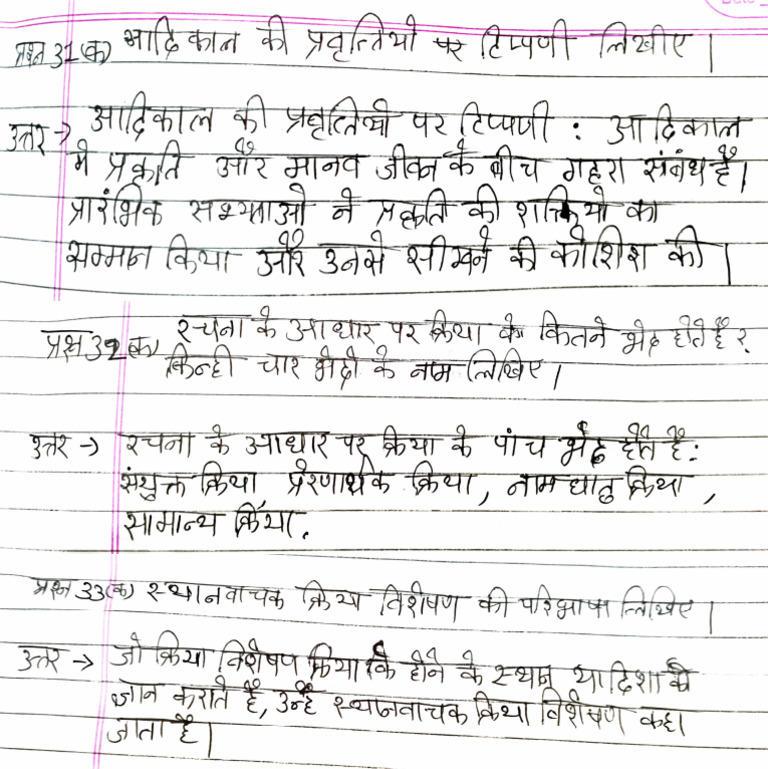 प्रश्न 31(क) आदिकाल की प्रवृत्तियों पर टिप्पणी लिखीए।
उत्तर → आदिकाल की प्रवृत्तियो पर टिप्पणी : आदिकाल
मे प्रकृति और मानव जीवन के बीच गहरा संबंध है।
प्रारंभिक सभ्यताओ ने प्रकृति की शक्तियो का
सम्मान किया और उनसे सीखने की कोशिश की।
प्रश्न 32(क) रचना के आधार पर क्रिया के कितने भेद होते है?
किन्ही चार भेदो के नाम लिखिए।
उत्तर → रचना के आधार पर क्रिया के पांच भेद होते है:
संयुक्त क्रिया, प्रेरणार्थक क्रिया, नाम धातु क्रिया,
सामान्य क्रिया.
प्रश्न 33(क) स्थानवाचक क्रिया विशेषण की परिभाषा लिखिए।
उत्तर → जो क्रिया विशेषण क्रिया के होने के स्थान या दिशा के
ज्ञान कराते है, उन्हे स्थानवाचक क्रिया विशेषण कहा
जाता है।